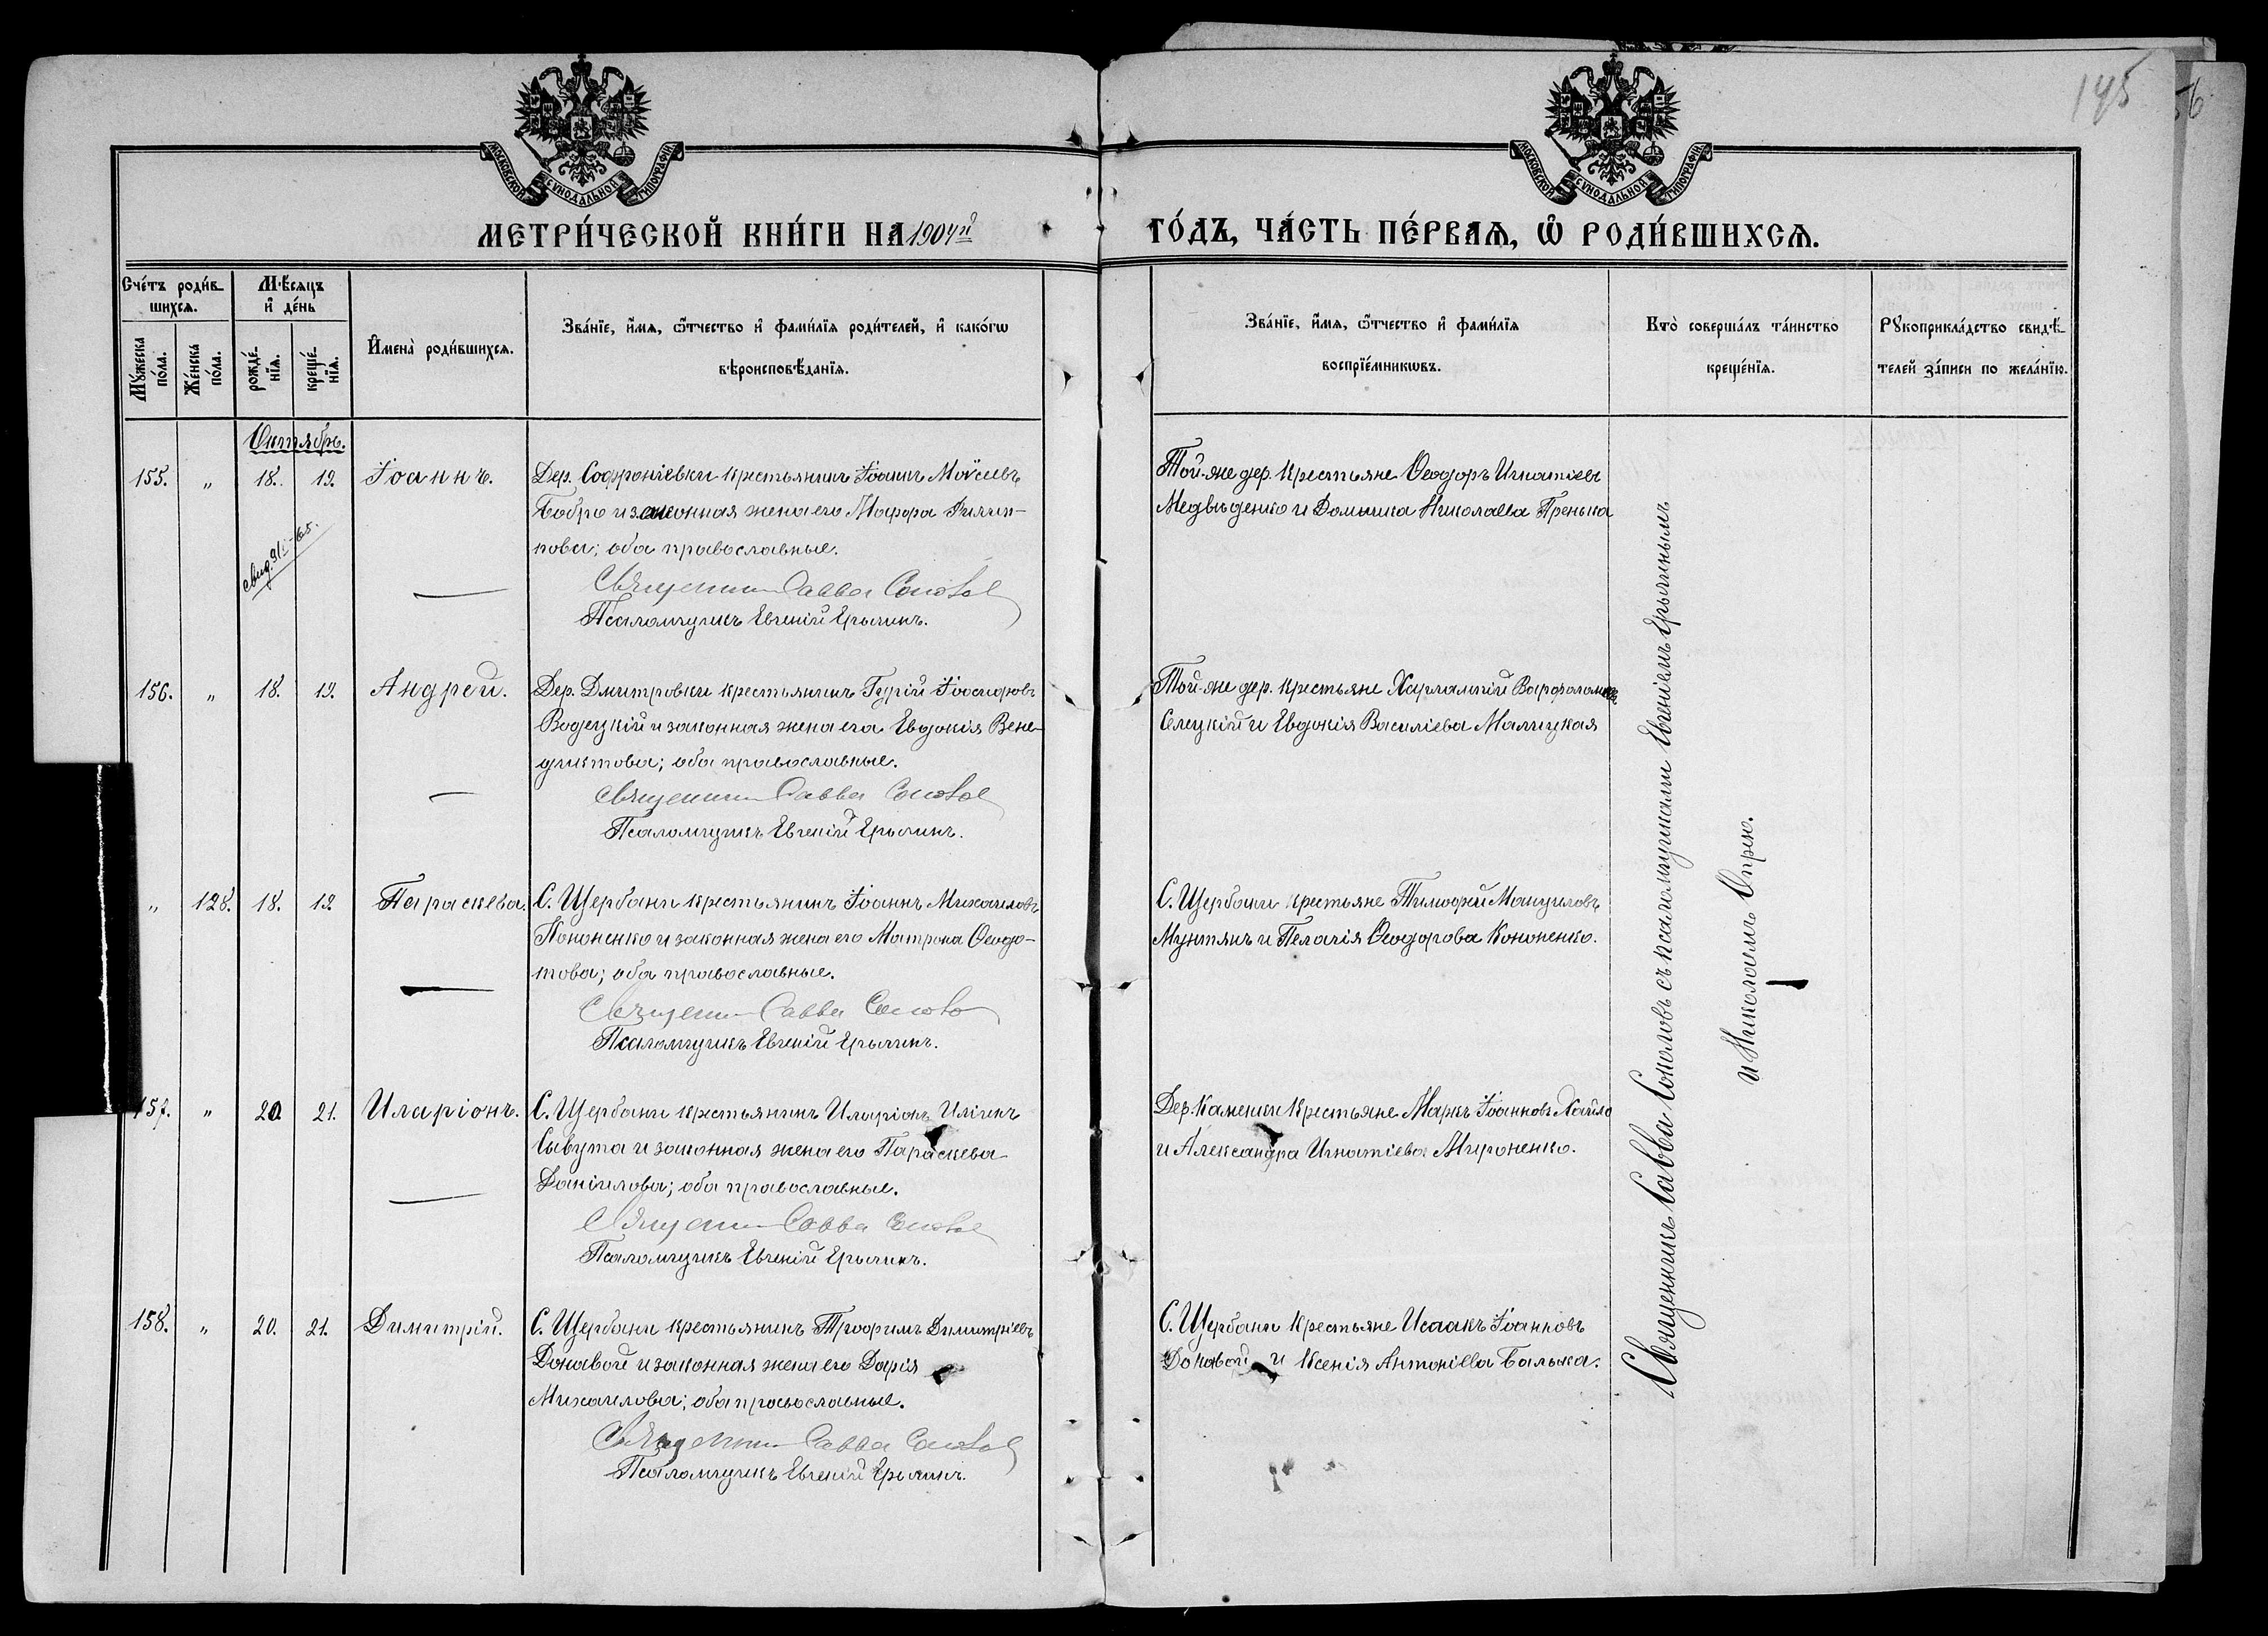 145
56
МОСКОВСКОЙ СѴНОДАЛЬНОЙ ТИПОГРАФІИ
МОСКОВСКОЙ СѴНОДАЛЬНОЙ ТИПОГРАФІИ
МЕТРИ́ЧЕСКОЙ КНИ́ГИ НА 1904й
ГО́ДЪ, ЧА́СТЬ ПЕ́РВАѦ, Ѡ҆ РОДИ́ВШИХСѦ.
Сче́тъ роди́в-
шихсѧ.
Мꙋ́жеска по́ла.
Же́нска по́ла.
Мѣ́сѧцъ
и҆ де́нь
рожде́-
нїѧ.
креще́-
нїѧ.
И҆мена̀ роди́вшихсѧ.
Зва́нїе, и҆́мѧ, ѻ҆́тчество и҆ фами́лїѧ роди́телей, и҆ како́гѡ
вѣроисповѣ́данїѧ.
Зва́нїе, и҆́мѧ, ѻ҆́тчество и҆ фами́лїѧ
воспрїе́мникѡвъ.
Кто̀ соверша́лъ та́инство
креще́нїѧ.
Рꙋкоприкла́дство свидѣ́-
телей за́писи по жела́нїю.
Октябрь.
155. „ 18. 19. Іоаннъ.
Дер. Софроніевки крестьянинъ Іоаннъ Моѵсеевъ
Бобро и законная жена его Мавра Филип-
пова; оба православные.
Священникъ Савва Соколов
Псаломщикъ Евгеній Ерылинъ.
Той-же дер. крестьяне Ѳеодоръ Игнатіевъ
Медвѣденко и Домника Николаева Пренька
156. „ 18. 19. Андрей.
Дер. Дмитровки крестьянинъ Гурій Іосифовъ
Водецкій и законная жена его Евдокія Вене-
диктова; оба православные.
Священникъ Савва Соколов
Псаломщикъ Евгеній Ерылинъ.
Той-же дер. крестьяне Харлампій Варфоломеевъ
Селецкій и Евдокія Василіева Малицкая
„ 128. 18. 19. Параскева.
С. Щербани крестьянинъ Іоаннъ Михаиловъ
Кононенко и законная жена его Матрона Ѳеодо-
това; оба православные.
Священникъ Савва Соколов
Псаломщикъ Евгеній Ерылинъ.
С. Щербани крестьяне Тимофей Мануиловъ
Мунтянъ и Пелагія Ѳеодорова Кононенко.
157. „ 20. 21. Иларіонъ.
С. Щербани крестьянинъ Иларіонъ Иліинъ
Сывута и законная жена его Параскева
Даніилова; оба православные.
Священникъ Савва Соколов
Псаломщикъ Евгеній Ерылинъ.
Дер. Каменки крестьяне Маркъ Іоанновъ Хайло
и Александра Игнатіева Мироненко.
158. „ 20. 21. Димитрій.
С. Щербани крестьянинъ Трофимъ Димитріевъ
Доковой и законная жена его Дарія
Михаилова; оба православные.
Священникъ Савва Соколов
Псаломщикъ Евгеній Ерылинъ.
С. Щербани крестьяне Исаакъ Іоанновъ
Доковой и Ксенія Антоніева Балыка.
Священникъ Савва Соколовъ съ псаломщиками Евгеніемъ Ерылинымъ
и Николаемъ Опрею.